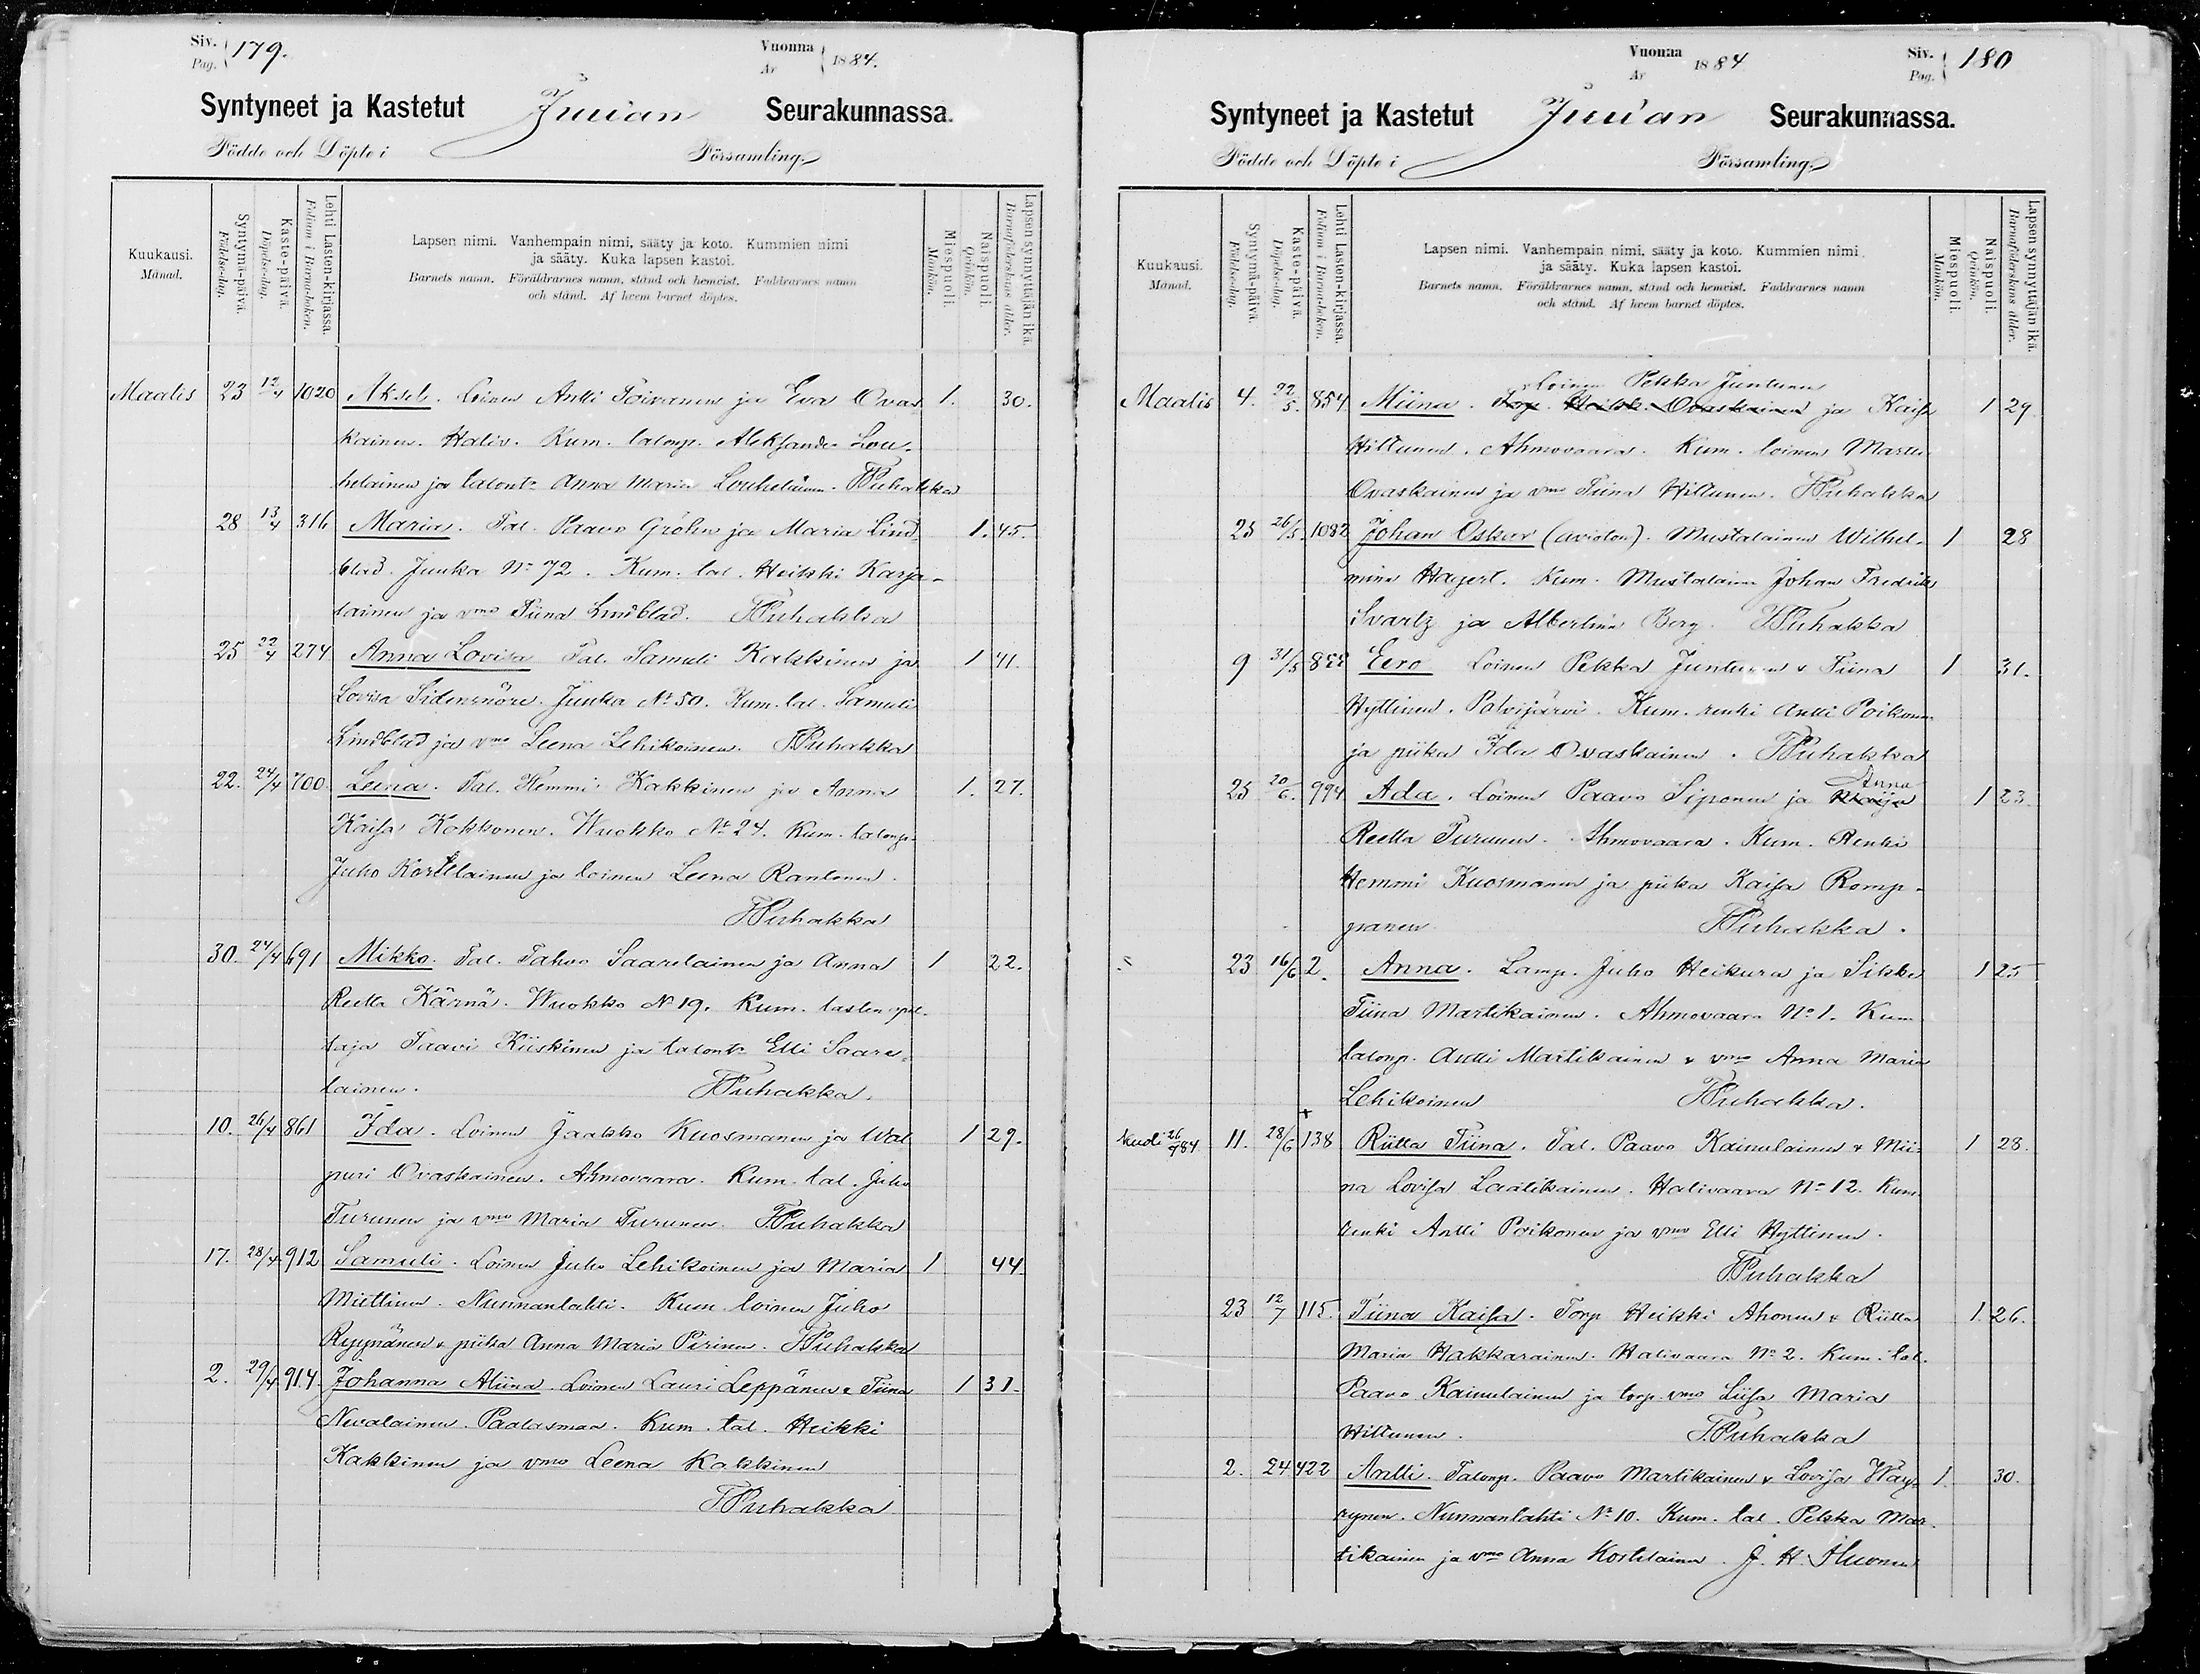 Siv. Pag. 179.
Vuonna År 1884.
Syntyneet ja Kastetut Juuan Seurakunnassa.
Födde och Döpte i Församling.
Kuukausi. Månad.
Syntymä-päivä. Födelse-dag.
Kaste-päivä. Döpelse-dag.
Lehti Lasten-kirjassa. Folium i Barna-boken.
Lapsen nimi. Vanhempain nimi, sääty ja koto. Kummien nimi
ja sääty. Kuka lapsen kastoi.
Barnets namn. Föräldrarnes namn, stånd och hemvist. Faddrarnes namn
och stånd. Af hvem barnet döptes.
Miespuoli. Mankön.
Naispuoli. Qvinkön.
Lapsen synnyttäjän ikä. Barnaföderskans ålder.
Maalis 23 12/4 1020 Akseli. Loinen Antti Toivanen ja Eva Ovas 1. 30.
kainen. Haliv. Kum. talonp. Aleksander Lou-
helainen ja talontr Anna Maria Louhelainen. TPuhakka
28 13/4 316 Maria. Tal. Paavo Gröhn ja Maria Lind 1. 45.
blad. Juuka No 72. Kum. tal. Heikki Karja-
lainen ja vmo Tiina Lindblad. TPuhakka
25 22/4 274 Anna Lovisa Tal. Samuli Kakkinen ja 1 41.
Lovisa Sidensnöre. Juuka No 50. Kum. tal. Samuli
Lindblad ja vmo Leena Lehikoinen. TPuhakka
22. 24/4 700. Leena. Tal. Hemmi Kakkinen ja Anna 1. 27.
Kaisa Kokkonen. Wuokko No 24. Kum. talonp.
Juho Korttelainen ja loinen Leena Rantonen.
TPuhakka
30. 24/4 691 Mikko. Tal. Tahvo Saarelainen ja Anna 1 22.
Reetta Kärnä. Wuokko No 19. Kum. lasten opet-
taja Taavi Kiiskinen ja talontr Elli Saare-
lainen. TPuhakka.
10. 26/4 861 Ida. Loinen Jaakko Kuosmanen ja Wal 1 29.
puri Ovaskainen. Ahmovaara. Kum. tal. Juho
Turunen ja vmo Maria Turunen. TPuhakka
17. 28/4 912 Samuli. Loinen Juho Lehikoinen ja Maria 1 44.
Miettinen. Nunnanlahti. Kum. loinen Juho
Ryynänen & piika Anna Maria Pirinen. TPuhakka
2. 29/4 914. Johanna Aliina. Loinen Lauri Leppänen & Tiina 1 31.
Nevalainen. Paalasmaa. Kum. tal. Heikki
Kakkinen ja vmo Leena Kakkinen
TPuhakka
Vuonna År 1884
Siv. Pag. 180
Syntyneet ja Kastetut Juuan Seurakunnassa.
Födde och Döpte i Församling.
Kuukausi. Månad.
Syntymä-päivä. Födelse-dag.
Kaste-päivä. Döpelse-dag.
Lehti Lasten-kirjassa. Folium i Barna-boken.
Lapsen nimi. Vanhempain nimi, sääty ja koto. Kummien nimi
ja sääty. Kuka lapsen kastoi.
Barnets namn. Föräldrarnes namn, stånd och hemvist. Faddrarnes namn
och stånd. Af hvem barnet döptes.
Miespuoli. Mankön.
Naispuoli. Qvinkön.
Lapsen synnyttäjän ikä. Barnaföderskans ålder.
Loinen Pekka Juntunen
Maalis 4. 22/5. 854 Miina. Torp. Heikk. Ovaskainen ja Kaisa 1 29.
Hiltunen. Ahmovaara. Kum. loinen Martti
Ovaskainen ja vmo Tiina Hiltunen. TPuhakka
25 26/5. 1082 Johan Oskar (avioton). Mustalainen Wilhel- 1 28
mina Hagert. Kum. Mustalainen Johan Fredrik
Svartz ja Albertina Borg. TPuhakka
9 31/5 833 Eero Loinen Pekka Juntunen & Tiina 1 31.
Hyttinen. Polvijärvi. Kum. renki Antti Poikonen
ja piika Ida Ovaskainen. TPuhakka
Anna
25 20/6. 994 Ada. Loinen Paavo Siponen ja Maija 1 23.
Reetta Turunen. Ahmovaara. Kum. Renki
Hemmi Kuosmanen ja piika Kaisa Romp-
panen. TPuhakka.
23 16/6 2. Anna. Lamp. Juho Heikura ja Sikke 1 25
Tiina Martikainen. Ahmovaara No 1. Kum
talonp. Antti Martikainen & vmo Anna Maria
Lehikoinen TPuhakka.
11. 28/6 138 Riitta Tiina. Tal. Paavo Kainulainen & Mii- 1 28.
na Lovisa Laatikainen. Halivaara No 12. Kum.
renki Antti Poikonen ja vmo Elli Hyttinen.
TPuhakka
23 12/7 115. Tiina Kaisa. Torp Heikki Ahonen & Riitta 1. 26.
Maria Hakkarainen. Halivaara No 2. Kum. tal.
Paavo Kainulainen ja torp. vmo Liisa Maria
Hiltunen. TPuhakka
2. 24 422 Antti. Talonp. Paavo Martikainen & Lovisa Wäy- 1. 30.
rynen. Nunnanlahti No 10. Kum. tal. Pekka Mar-
tikainen ja vmo Anna Kortelainen. J. H.